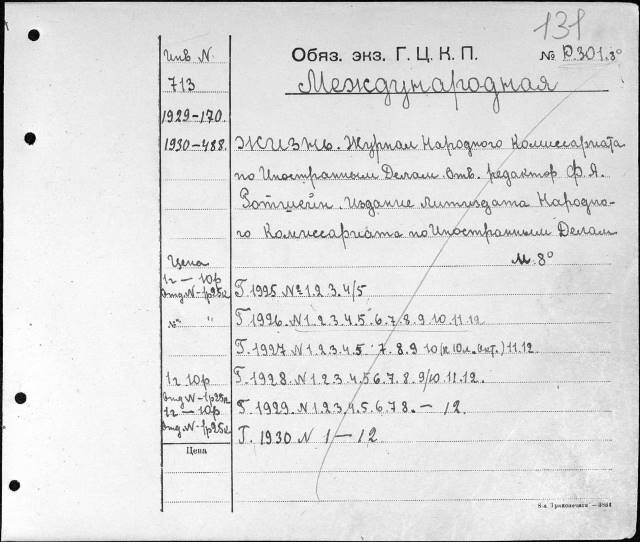 131
Инв N.
Обяз. экз. Г. Ц. К. П.
№ Р.301.8°
713
Международная
1929-170.
1930-488.
жизнь. Журнал Народного Комиссариата
по Иностранным Делам отв. редактор Ф. Я.
Ротштейн. Издание Литиздата Народно-
го Комиссариата по Иностранным Делам
М. 8°
Цена
1г - 10р
отд N-1р25к
Г 1925 № 1. 2 3. 4/5
Г 1926. N 1. 2. 3. 4. 5. 6. 7. 8. 9. 10. 11. 12
Г. 1927 N 1. 2. 3. 4. 5 7. 8. 9 10 11. 12.
1г 10р
Г. 1928. N 1. 2 3. 4. 5 6. 7. 8. 9/10. 11. 12.
отд N-1р25к
1г - 10р
Г. 1929. N 1. 2 3. 4. 5. 6. 7 8. - 12.
отд N-1р25к
Г. 1930 N 1 - 12
Цена